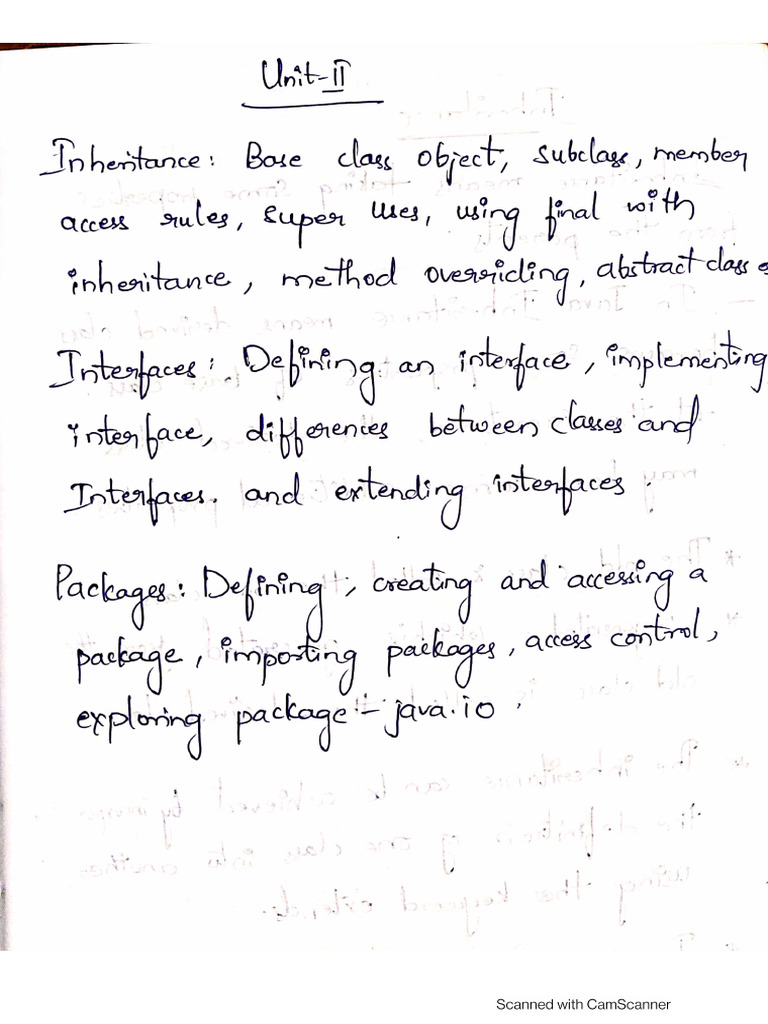 Unit-II
Inheritance: Base class object, subclass, member
access rules, super uses, using final with
inheritance, method overriding, abstract class
Interfaces: Defining an interface, implementing
interface, differences between classes and
Interfaces. and extending interfaces.
Packages: Defining, creating and accessing a
package, importing packages, access control,
exploring package:- java.io.
Scanned with CamScanner